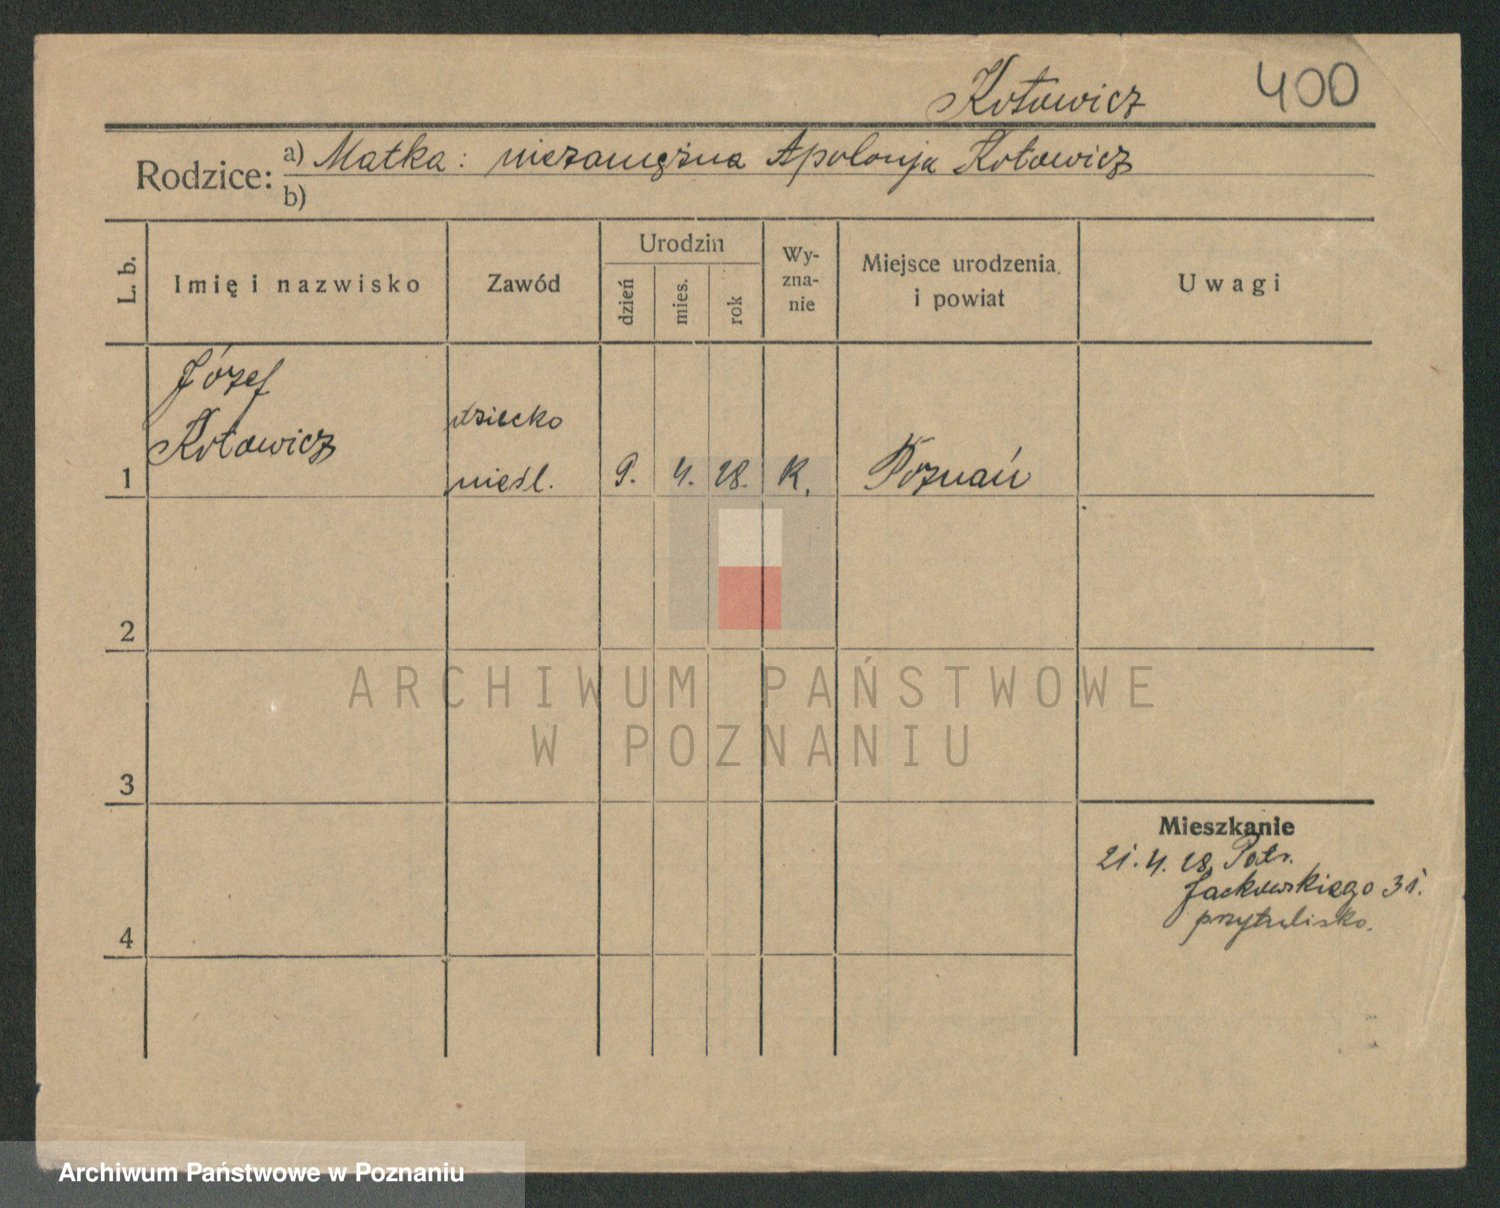 Kotowicz 400
Rodzice: a) Matka: niezamężna Apolonja Kotowicz
b)
L. b. Imię i nazwisko Zawód Urodzin dzień mies. rok Wy-
zna-
nie Miejsce urodzenia
i powiat Uwagi
Józef
Kotowicz dziecko
1 nieśl. 9. 4. 28. K. Poznań
2
ARCHIWUM PAŃSTWOWE
W POZNANIU
3
Mieszkanie
21. 4. 28
Jackowskiego 31.
przytulisko.
4
Archiwum Państwowe w Poznaniu